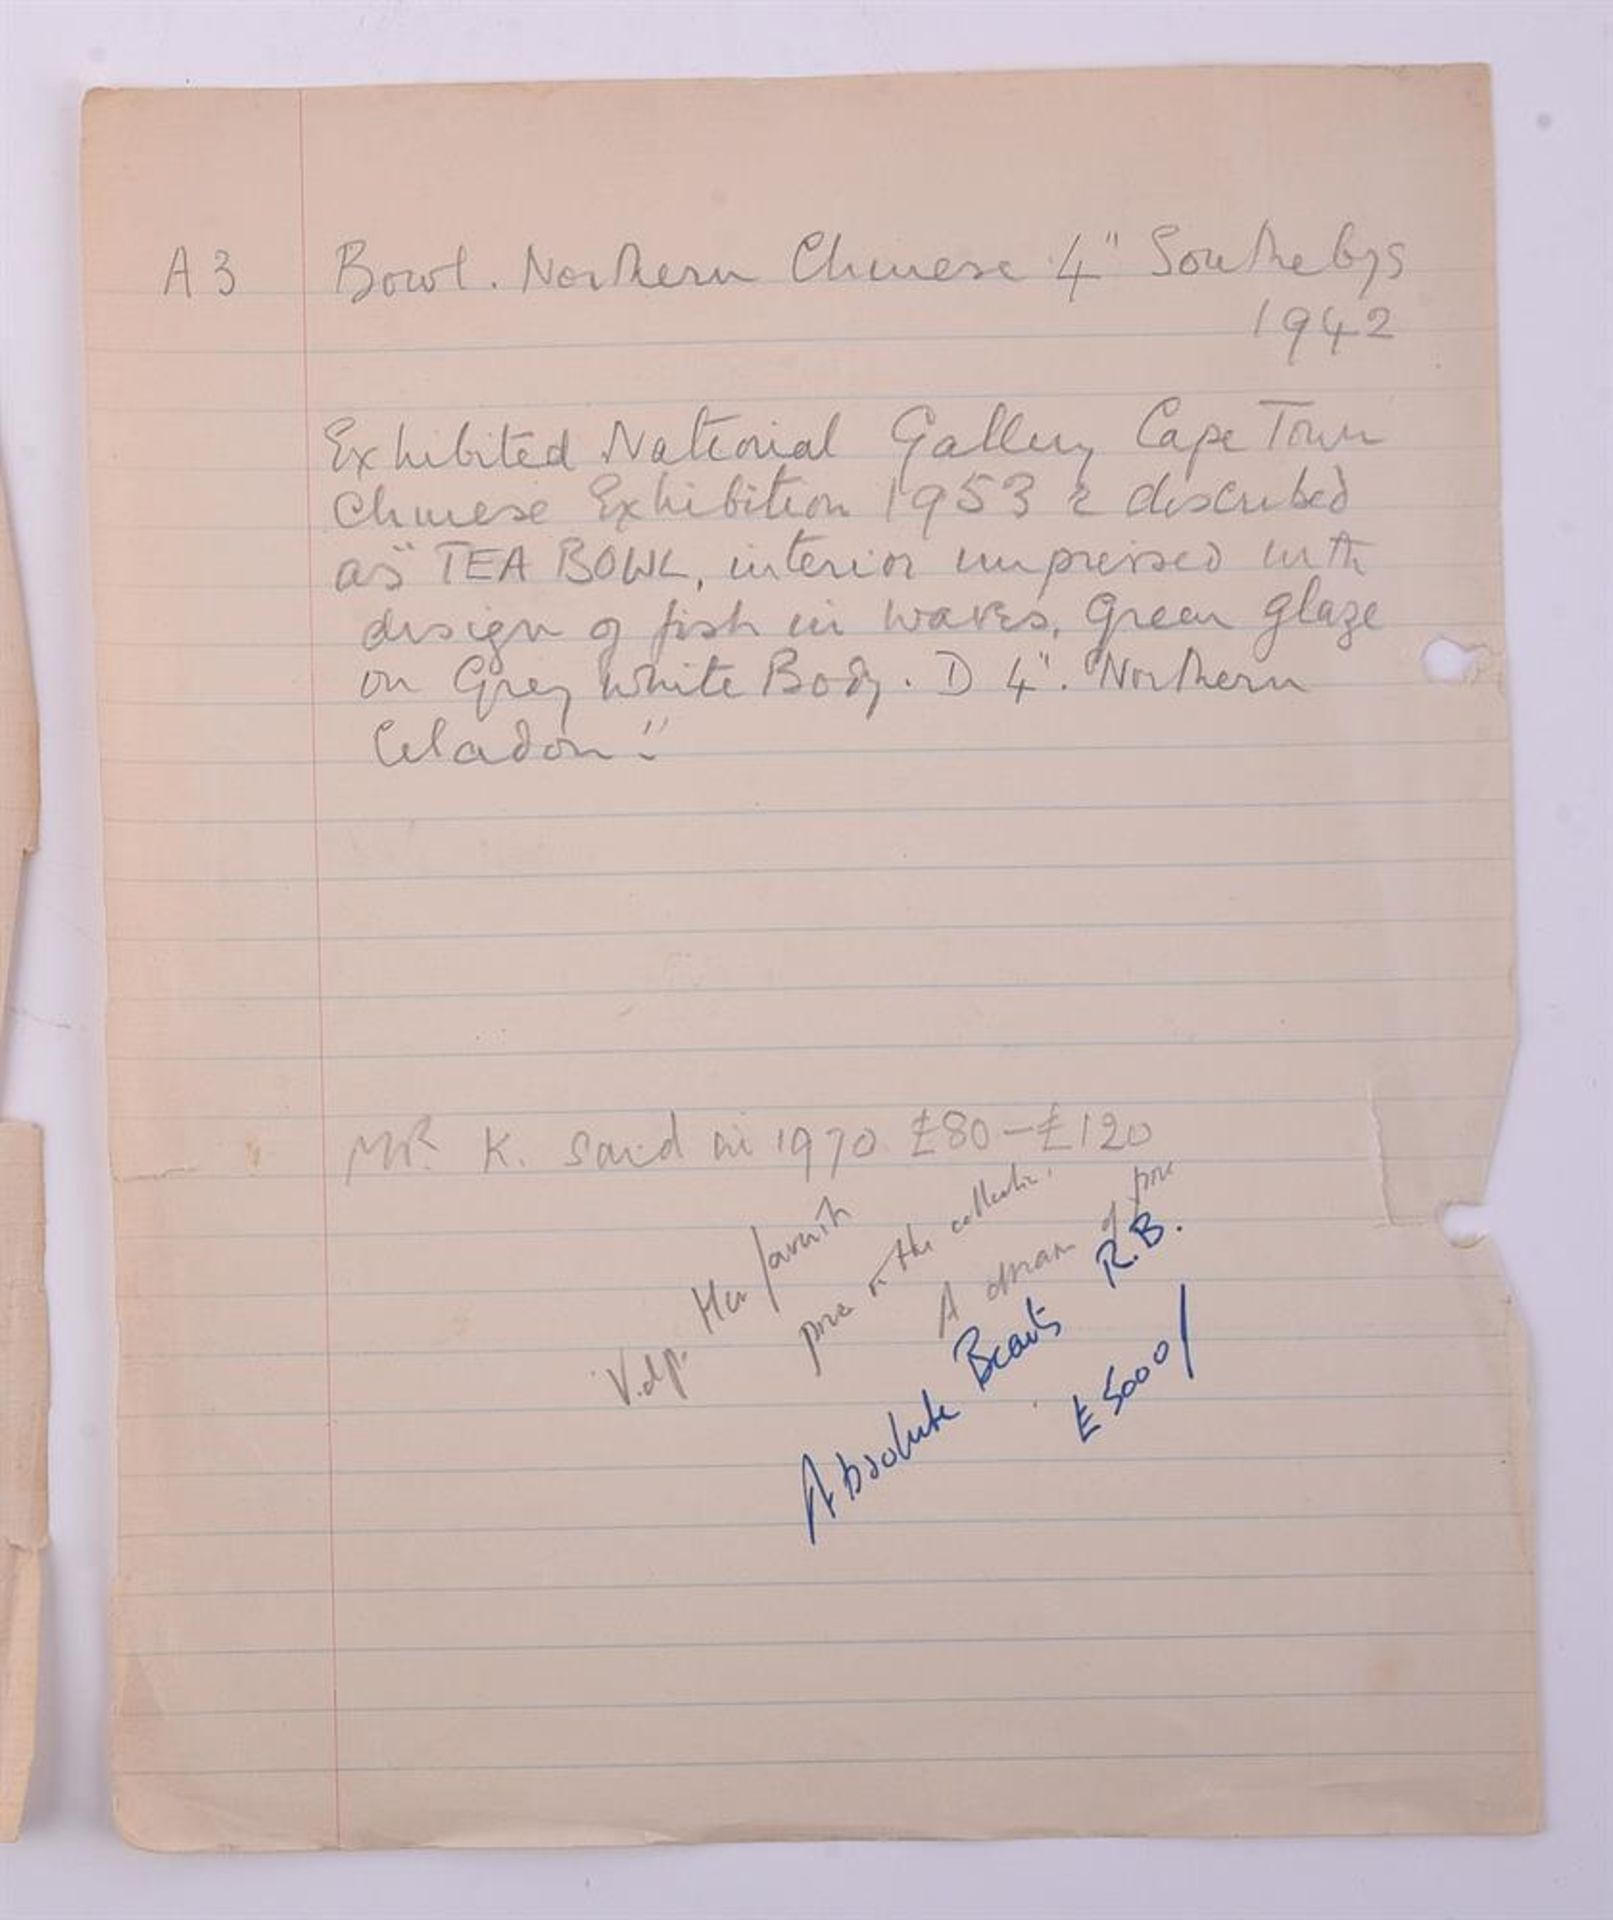 A3 Bowl. Northern Chinese 4" Sothebys
1942
Exhibited National Gallery Cape Town
Chinese Exhibition 1953 & described
as "TEA BOWL, interior impressed with
design of fish in waves, Green glaze
on Grey white Body. D 4". Northern
Celadon."
MR. K. said in 1970 £80-£120
V.dp. Her favourite
piece in the collection.
A dream of piece
Absolute Beauty R.B.
£5000/